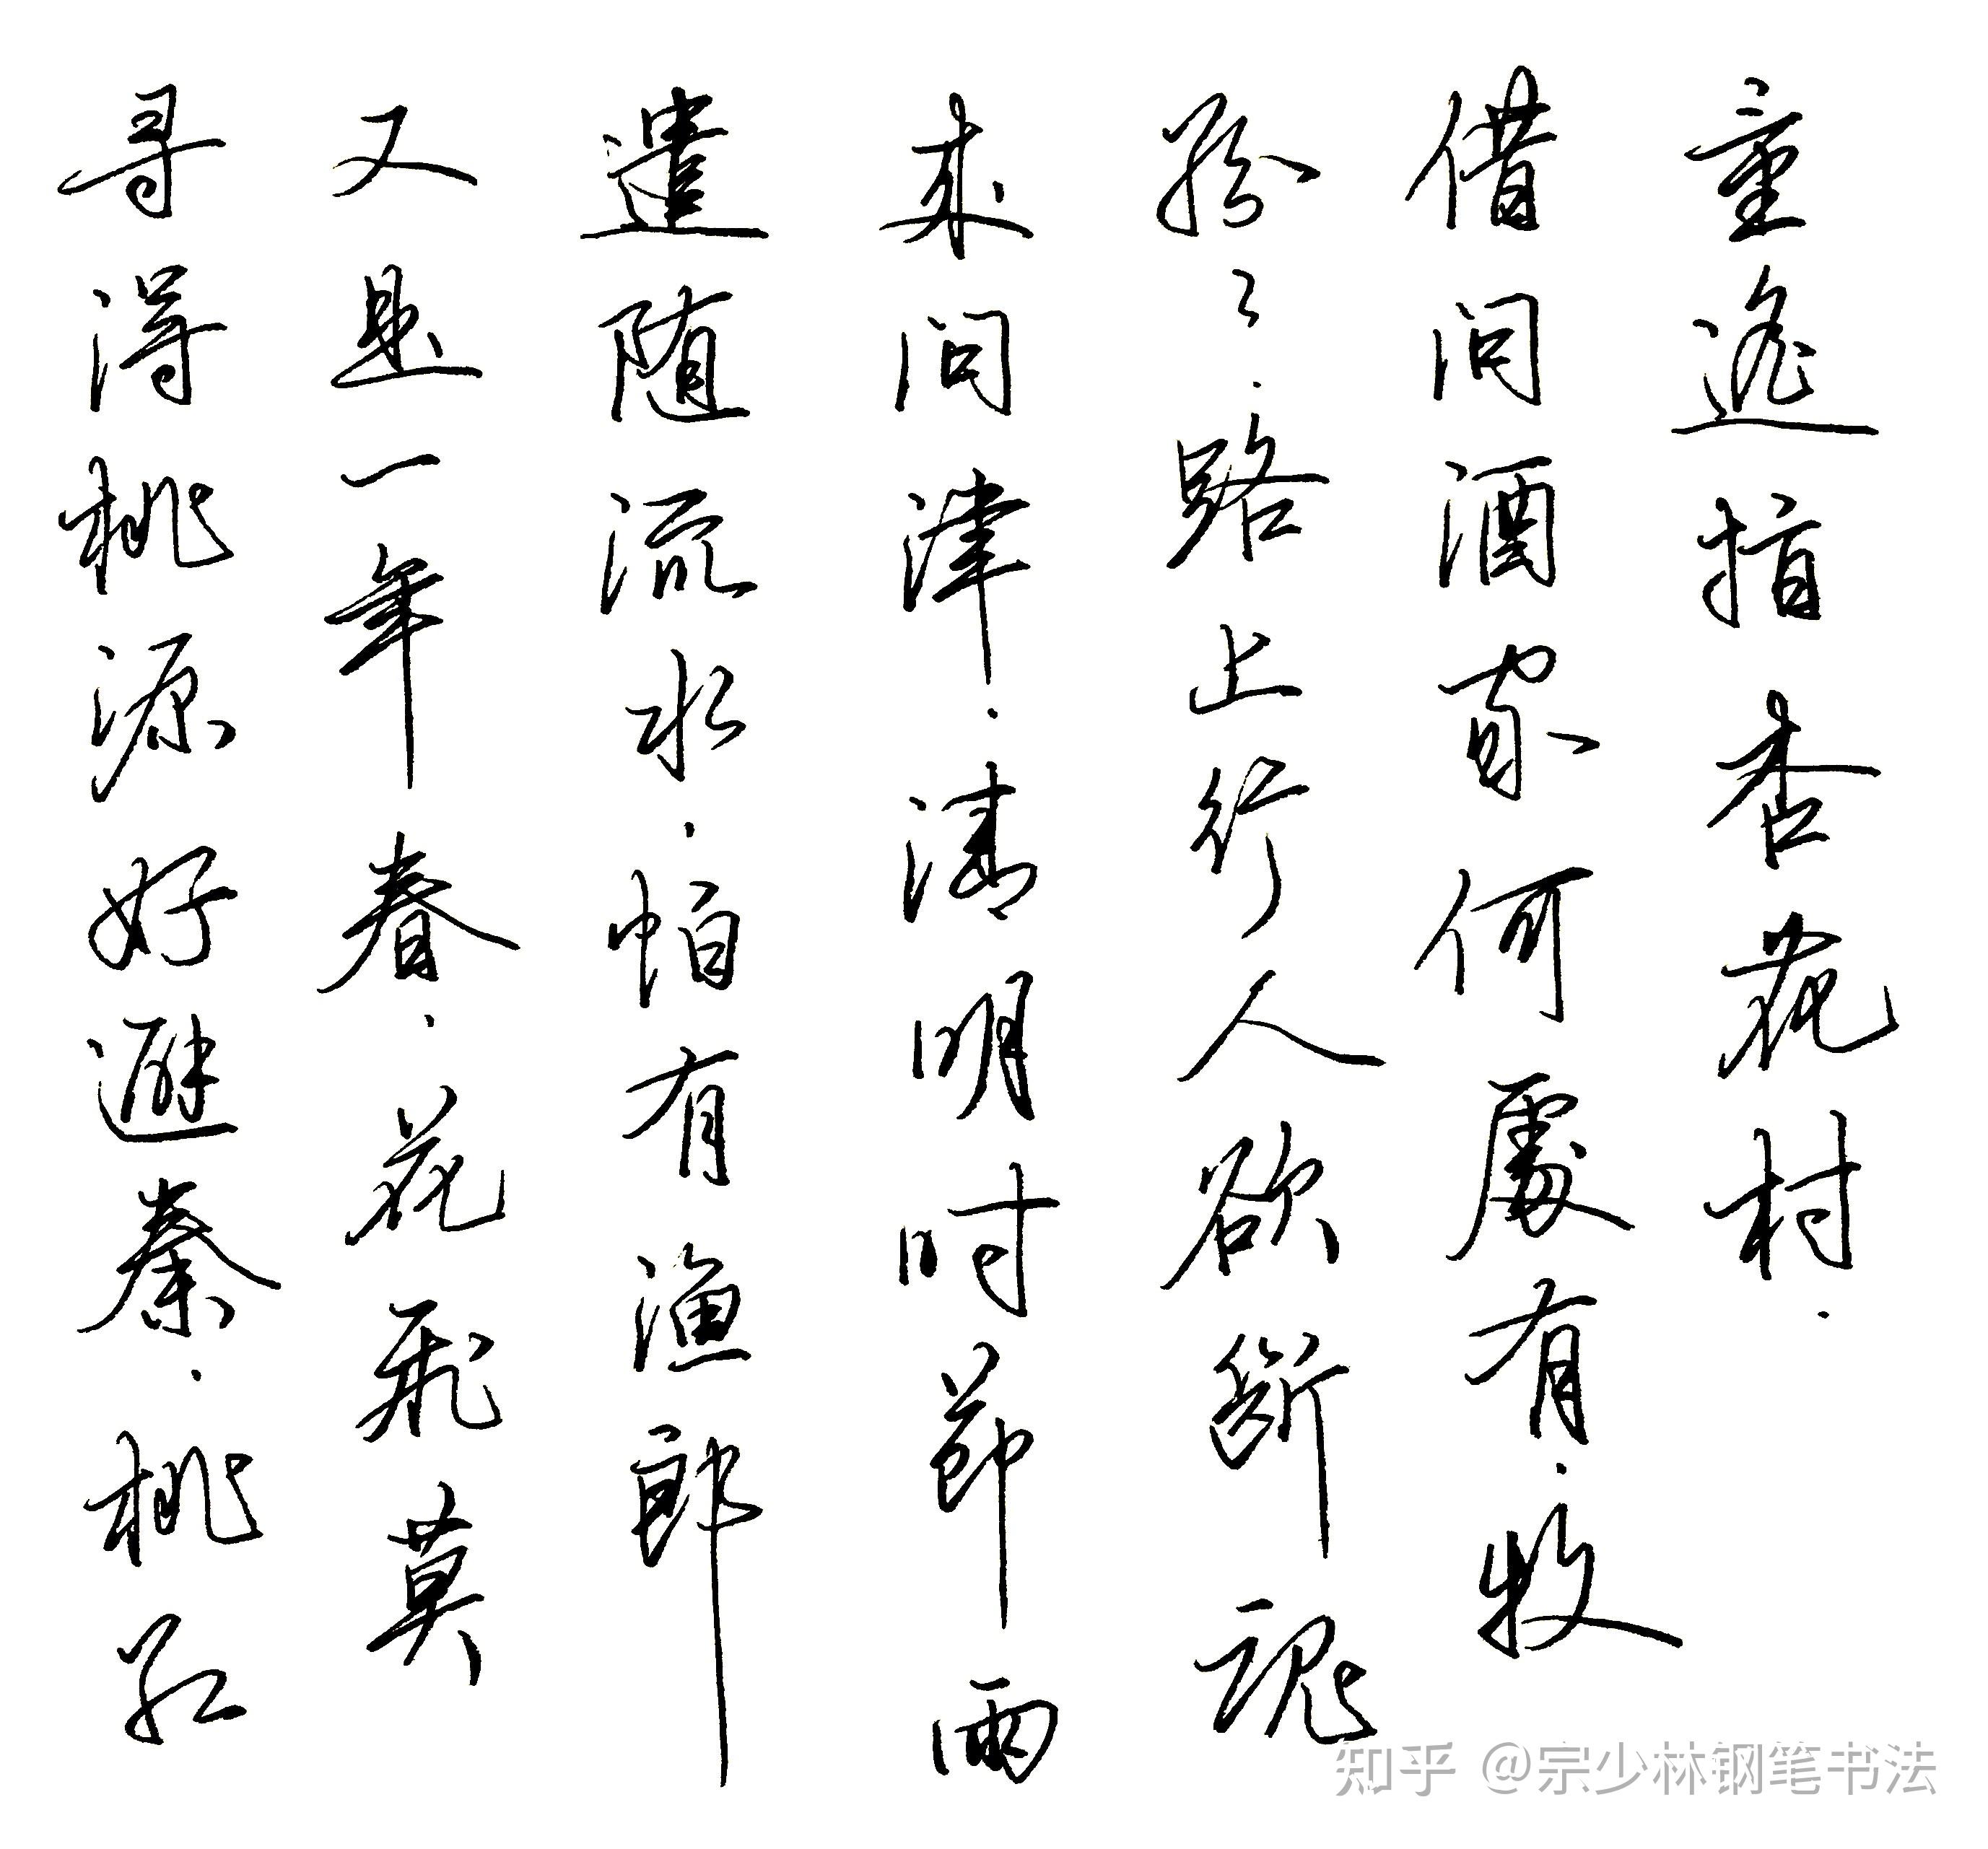 寻得桃源好避秦.桃红
又是一年春.花飛莫
遣随流水.怕有渔郎
来问津.清明时節雨
纷々.路上行人欲断魂
借问酒家何處有.牧
童遥指杏花村.
知乎 @宗少林钢笔书法